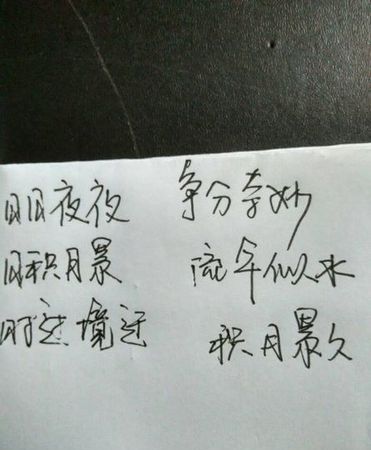 日日夜夜 争分夺妙
日积月累 流年似水
时过境迁 积月累久